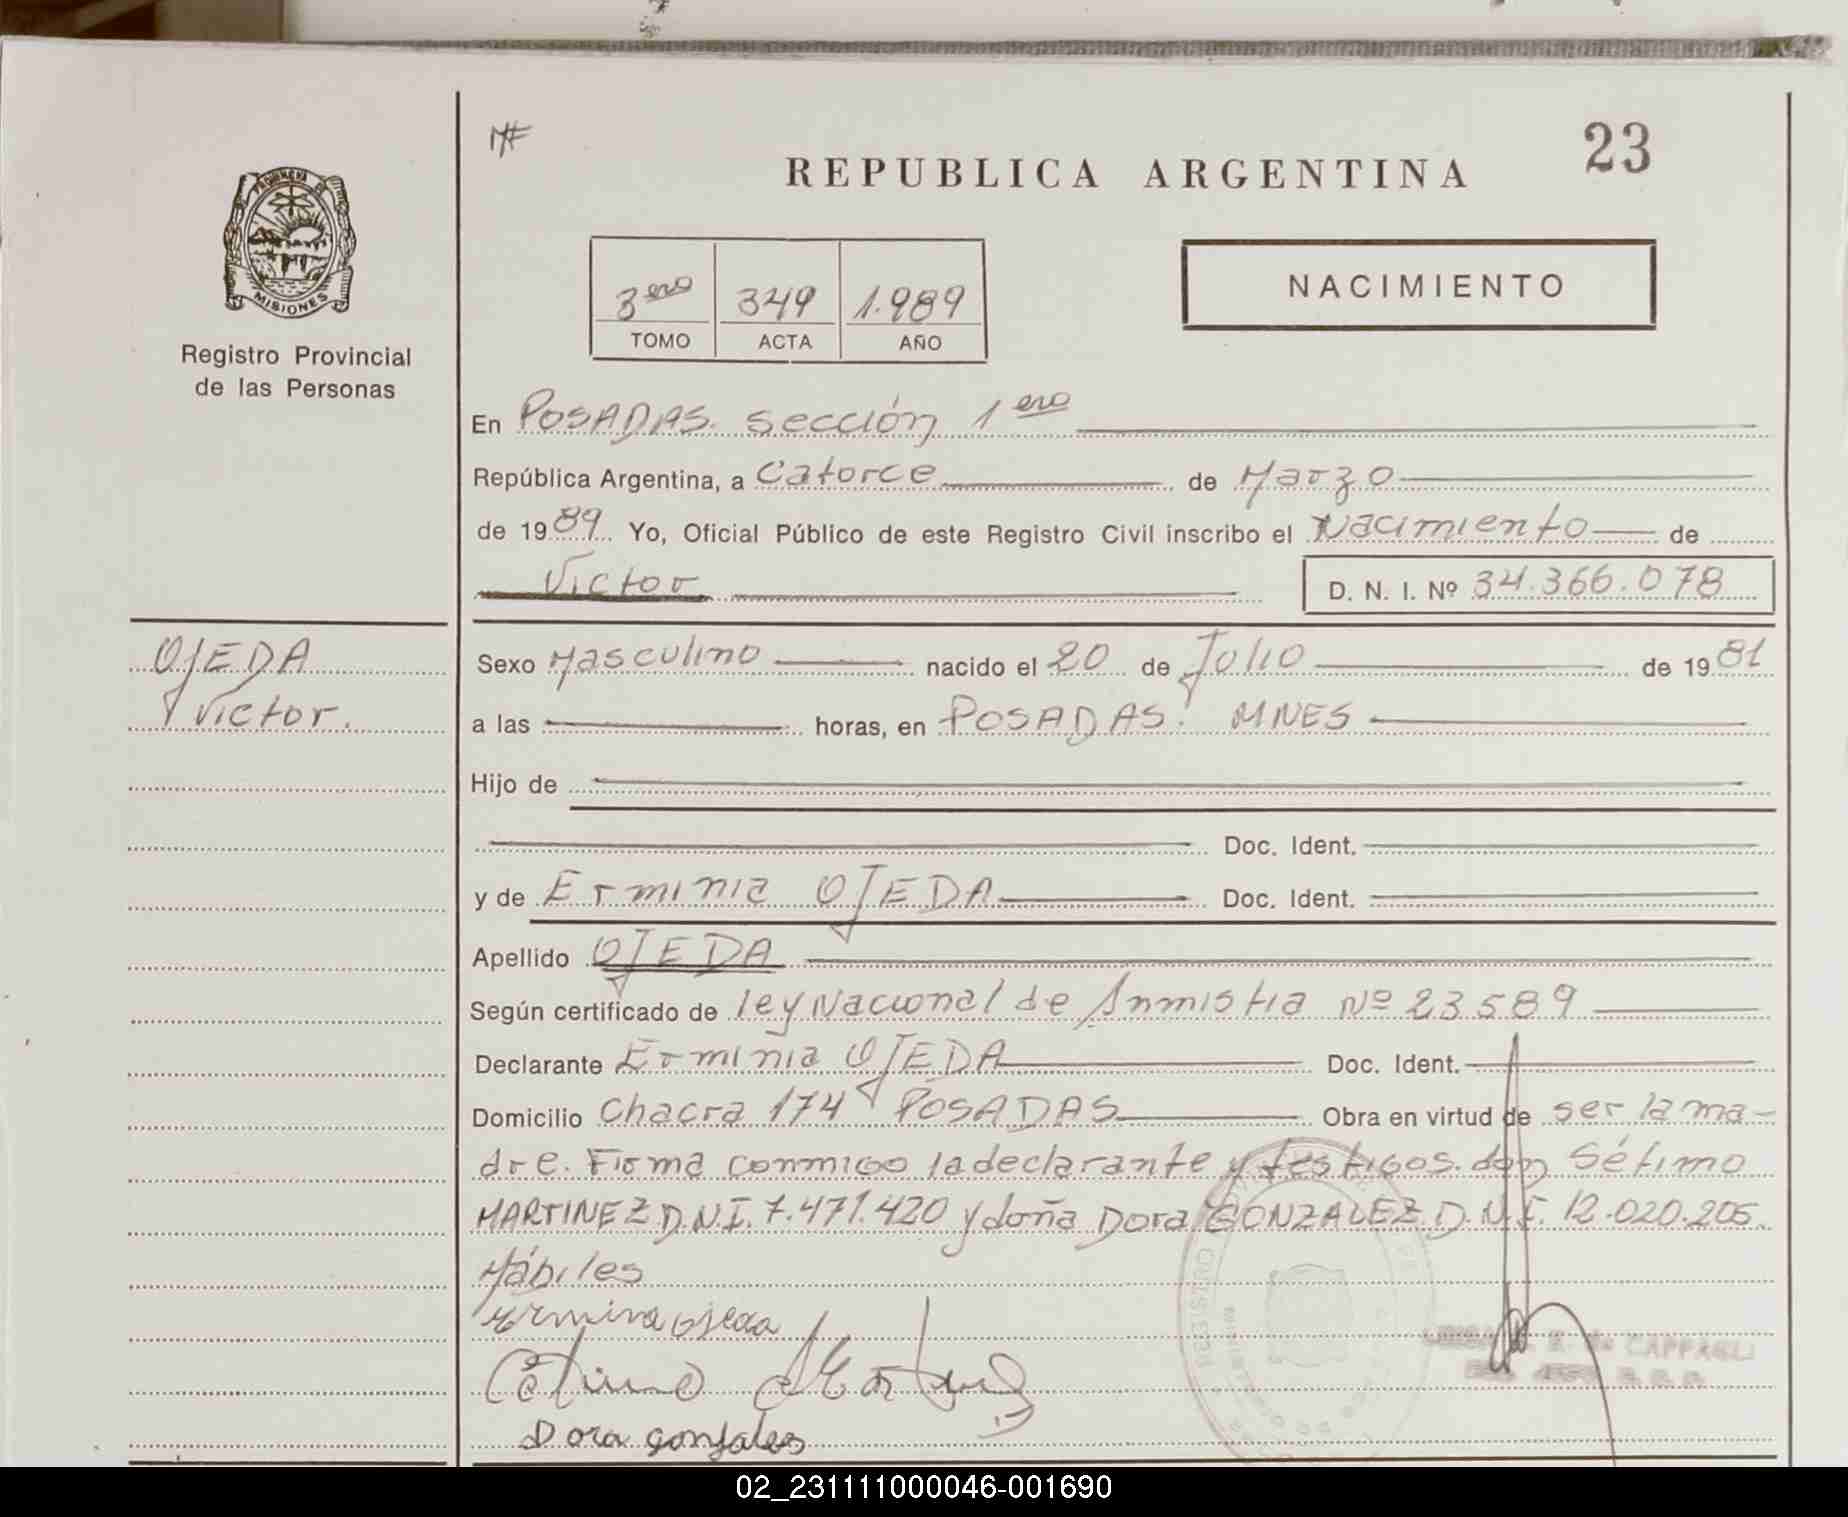 MF
23
REPUBLICA ARGENTINA
PROVINCIA DE
MISIONES
Registro Provincial
de las Personas
3ero 349 1.989
TOMO ACTA AÑO
NACIMIENTO
En POSADAS. sección 1era
República Argentina, a Catorce de Marzo
de 1989. Yo, Oficial Público de este Registro Civil inscribo el Nacimiento de
Victor D. N. I. Nº 34.366.078
OJEDA
Victor.
Sexo Masculino nacido el 20 de Julio de 1981
a las horas, en POSADAS. MNES
Hijo de
Doc. Ident.
y de Erminia OJEDA Doc. Ident.
Apellido OJEDA
Según certificado de ley Nacional de Anmistia Nº 23589
Declarante Erminia OJEDA Doc. Ident.
Domicilio Chacra 174 POSADAS Obra en virtud de ser la ma-
dre. Firma conmigo la declarante y testigos. don Sétimo
MARTINEZ D.N.I. 7.471.420 y doña Dora GONZALEZ D.N.I. 12.020.205.
Hábiles
ermina ojeda
Dora gonzales
REGISTRO
CAFFAGLI
02_231111000046-001690